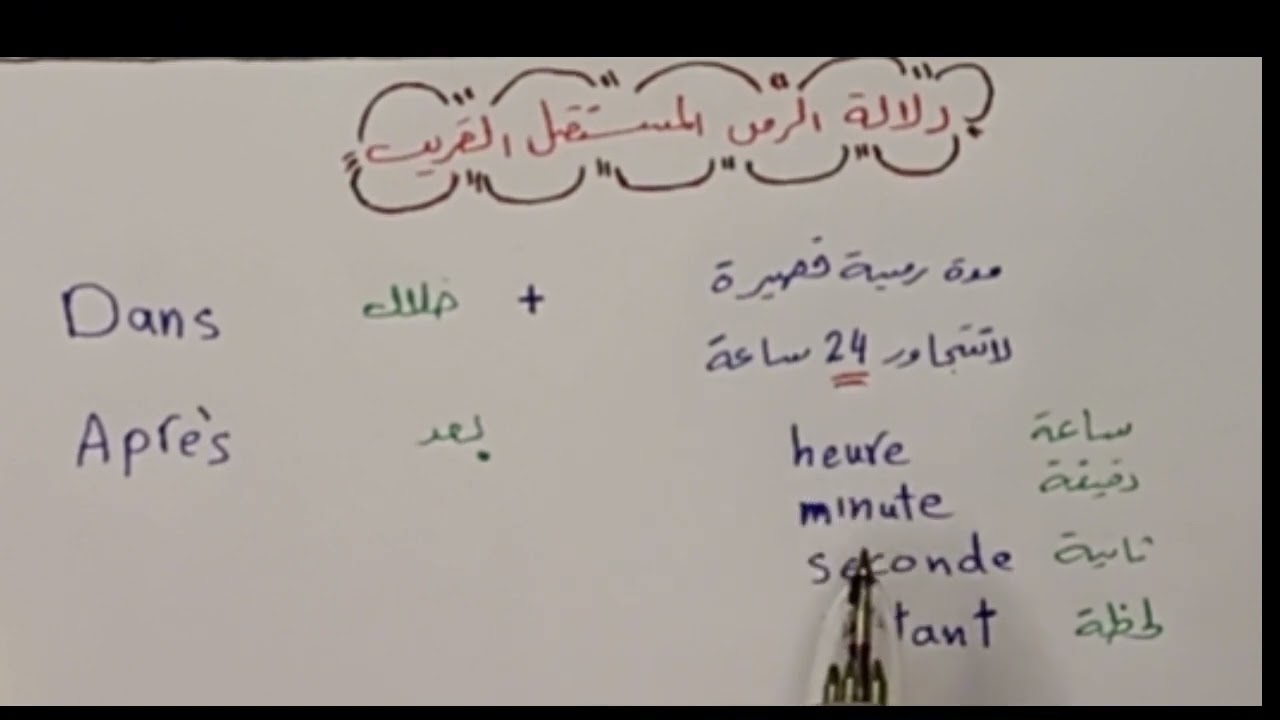 دلالة الزمن المستقبل القريب
Dans خلال + مدة زمنية قصيرة
لاتتجاوز 24 ساعة
Après بعد
heure ساعة
minute دقيقة
seconde ثانية
tant لحظة